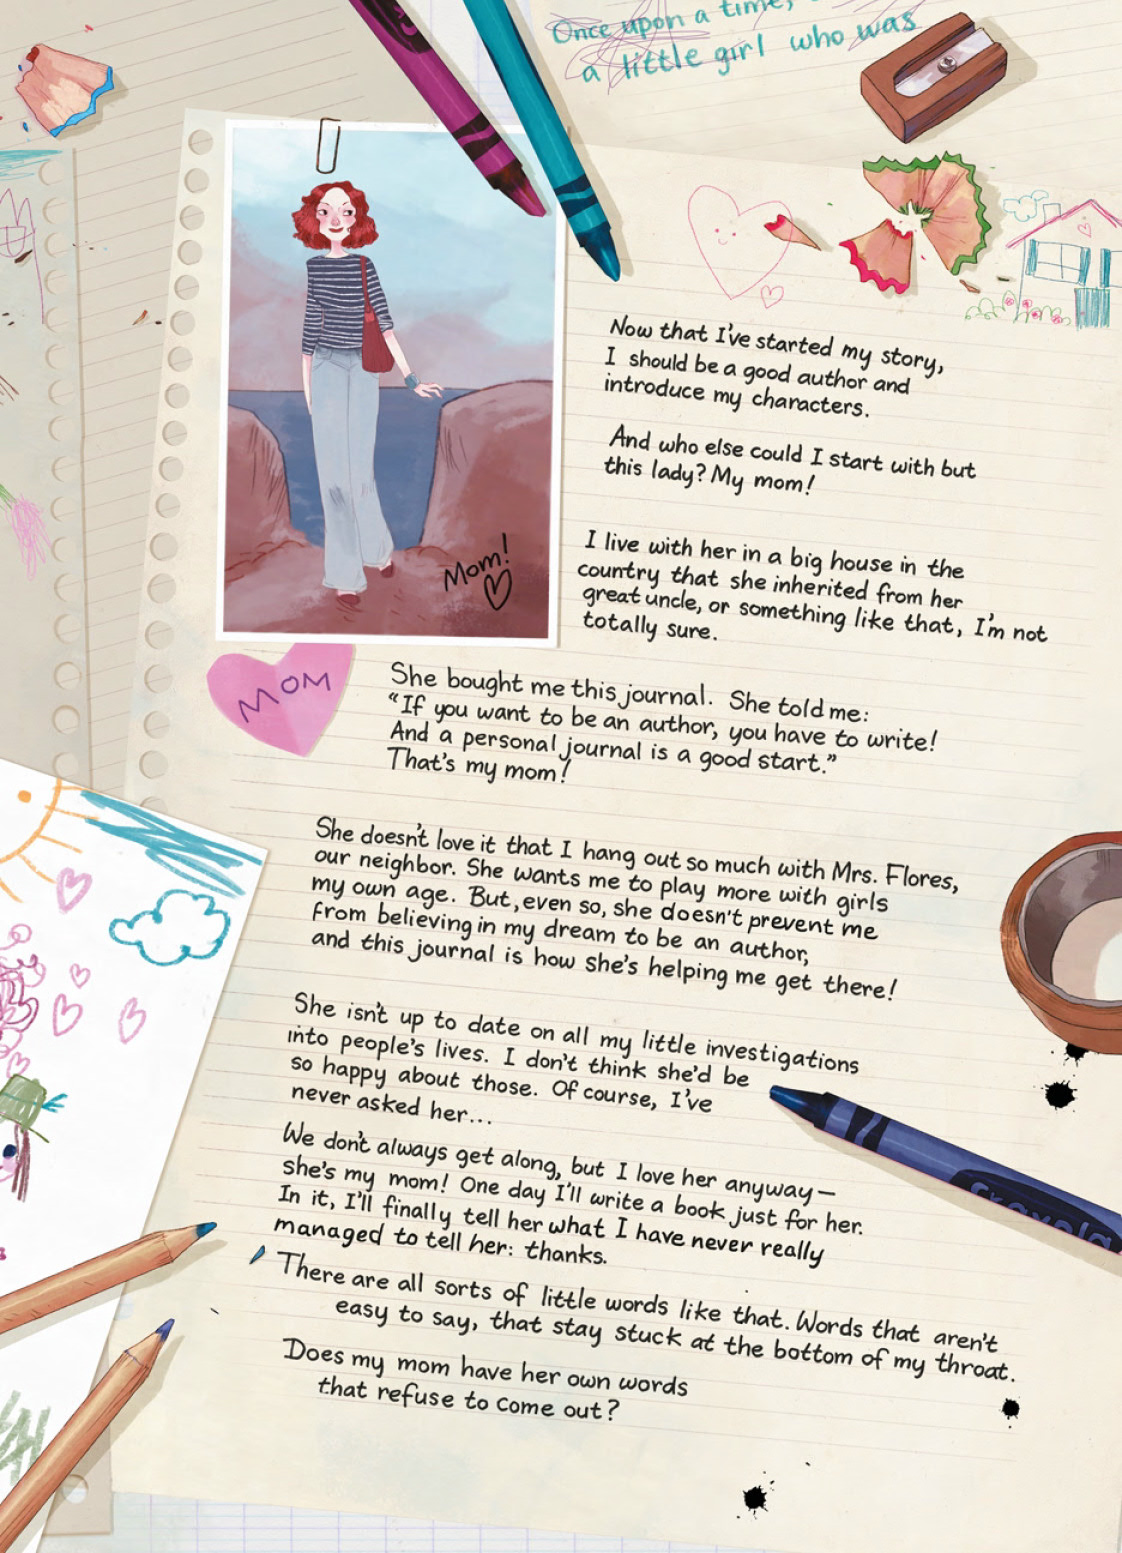 Once upon a time,
a little girl who was
Now that I've started my story,
I should be a good author and
introduce my characters.
And who else could I start with but
this lady? My mom!
Mom!
I live with her in a big house in the
country that she inherited from her
great uncle, or something like that, I'm not
totally sure.
MOM
She bought me this journal. She told me:
“If you want to be an author, you have to write!
And a personal journal is a good start.”
That's my mom!
She doesn't love it that I hang out so much with Mrs. Flores,
our neighbor. She wants me to play more with girls
my own age. But, even so, she doesn't prevent me
from believing in my dream to be an author,
and this journal is how she's helping me get there!
She isn't up to date on all my little investigations
into people's lives. I don't think she'd be
so happy about those. Of course, I've
never asked her...
We don't always get along, but I love her anyway—
she's my mom! One day I'll write a book just for her.
In it, I'll finally tell her what I have never really
managed to tell her: thanks.
There are all sorts of little words like that. Words that aren't
easy to say, that stay stuck at the bottom of my throat.
Does my mom have her own words
that refuse to come out?
Crayola